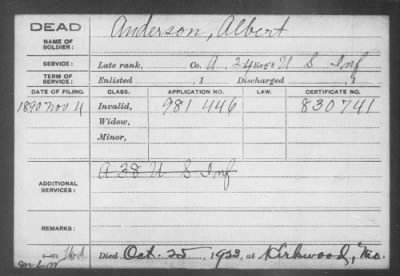 DEAD
NAME OF SOLDIER: Anderson, Albert
SERVICE: Late rank, Co. A. 24 Reg't U S Inf
TERM OF SERVICE: Enlisted , 1 Discharged , 1
DATE OF FILING. CLASS. APPLICATION NO. LAW. CERTIFICATE NO.
1890 Nov 4 Invalid, 981 446 830741
Widow,
Minor,
ADDITIONAL SERVICES: A 38 U S Inf
REMARKS:
Died Oct. 25, 1923, at Kirkwood, Mo.